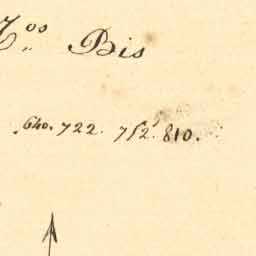 Nos Bis
640. 722. 752. 810.